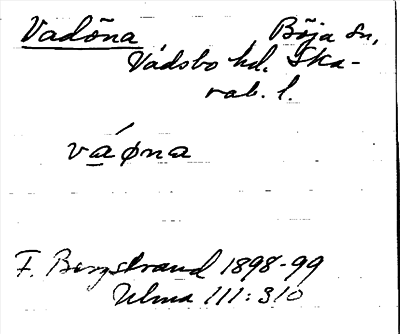 Vadöna Böja sn,
Vadsbo hd. Ska-
rab. l.
va´øna
F. Bergstrand 1898-99
Ulma 111:310